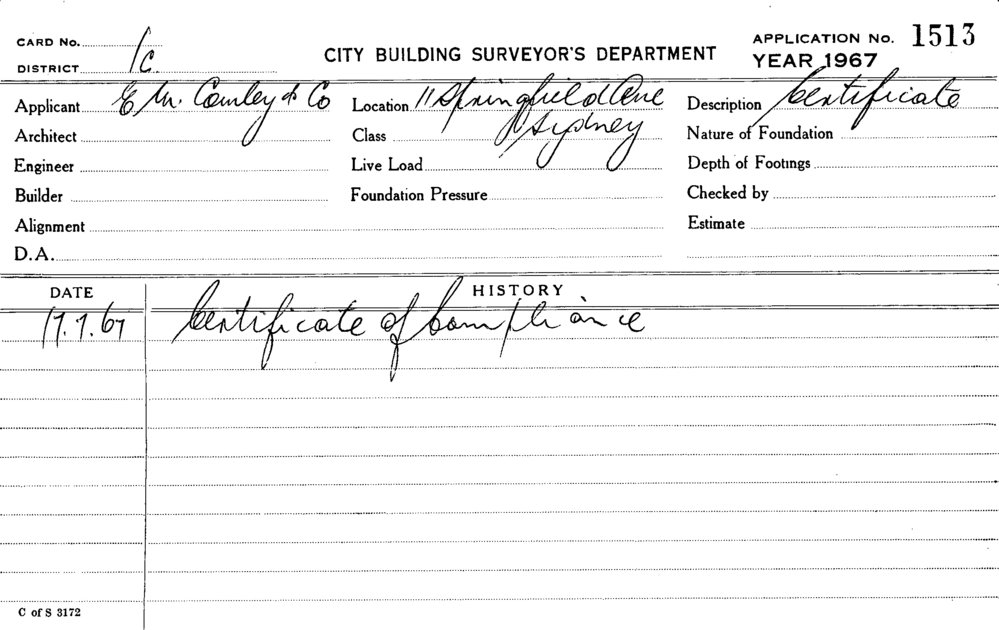 CARD No.
DISTRICT 1c
CITY BUILDING SURVEYOR'S DEPARTMENT
APPLICATION No. 1513
YEAR 1967
Applicant E. W. Cawley & Co
Location 11 Springfield Ave
Sydney
Description Certificate
Architect
Class
Nature of Foundation
Engineer
Live Load
Depth of Footings
Builder
Foundation Pressure
Checked by
Alignment
Estimate
D.A.
DATE HISTORY
17.7.67 Certificate of Compliance
C of S 3172